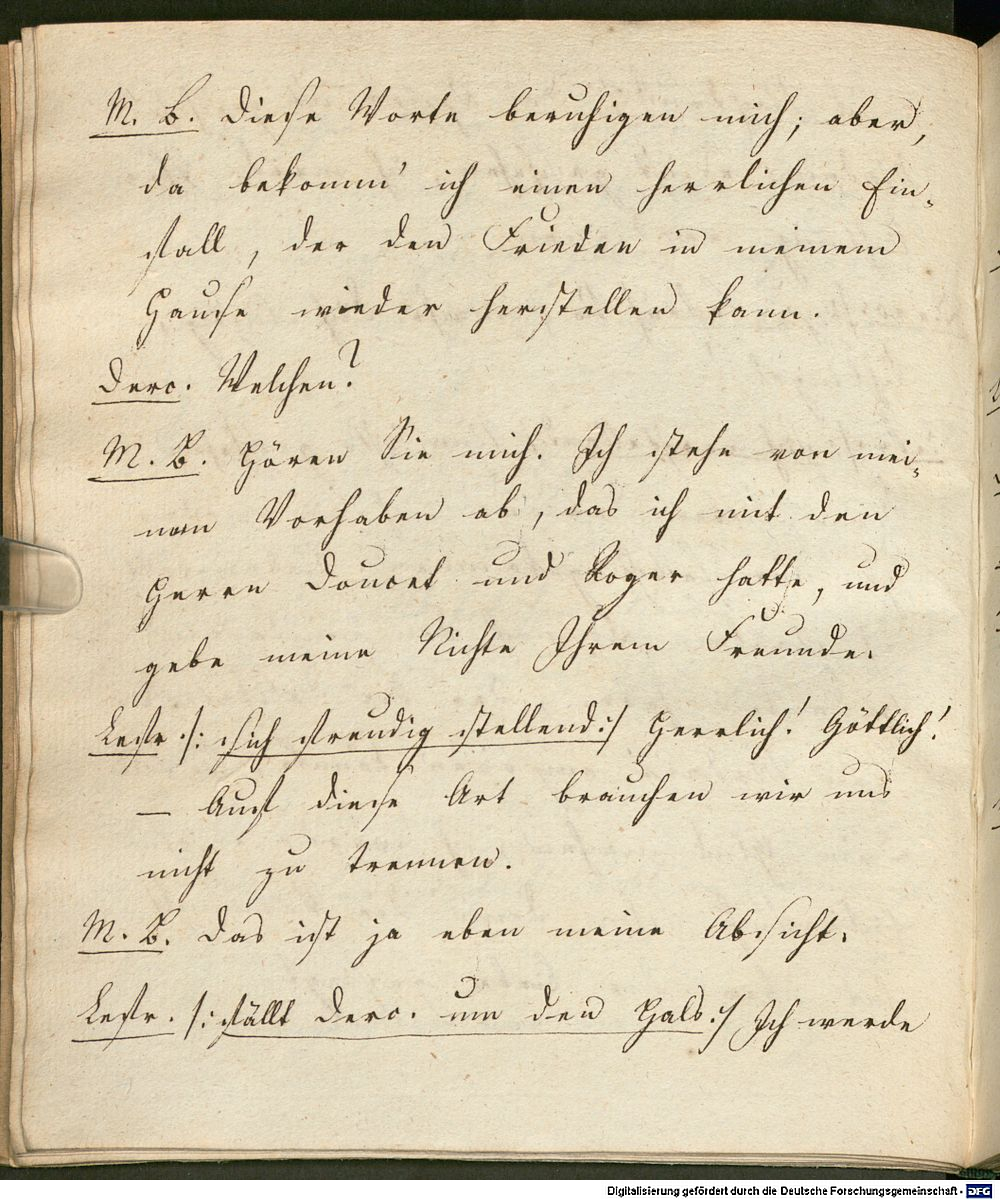 M. B. Diese Worte beruhigen mich; aber,
da bekomm' ich einen herrlichen Ein-
fall, der den Frieden in meinem
Hause wieder herstellen kann.
Derc. Welchen?
M. B. Hören Sie mich. Ich stehe von mei-
nem Vorhaben ab, das ich mit den
Herrn Doucet und Roger hatte, und
gebe meine Nichte Ihrem Freunde.
Lestr. /: sich freudig stellend :/ Herrlich! Göttlich!
— Auf diese Art brauchen wir uns
nicht zu trennen.
M. B. Das ist ja eben meine Absicht.
Lestr. /: fällt Derc. um den Hals :/ Ich werde
Digitalisierung gefördert durch die Deutsche Forschungsgemeinschaft - DFG